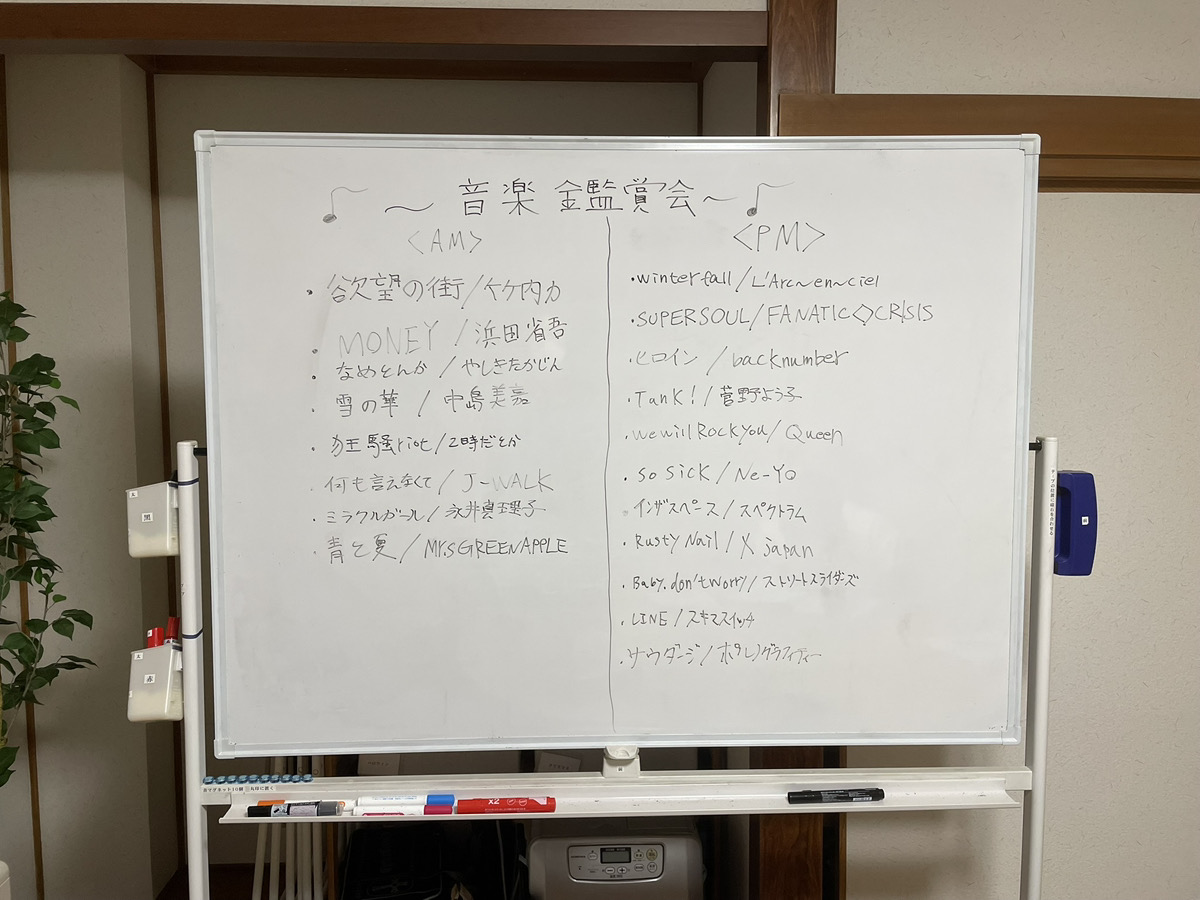 ♪ 〜 音楽 鑑賞会〜♪
<AM>
・欲望の街/竹内力
・MONEY/浜田省吾
・なめとんか/やしきたかじん
・雪の華/中島美嘉
・狂騒riot/2時だとか
・何も言えなくて/J-WALK
・ミラクルガール/永井真理子
・青と夏/Mr.sGREENAPPLE
<PM>
・winterfall/L'Arc〜en〜ciel
・SUPERSOUL/FANATIC◇CRISIS
・ヒロイン/backnumber
・Tank!/菅野よう子
・wewillRockyou/Queen
・so sick/Ne-Yo
・インザスペース/スペクトラム
・Rusty Nail/X japan
・Baby.don'tworry/ストリートスライダーズ
・LINE/スキマスイッチ
・サウダージ/ポルノグラフィティー
黒
赤
x2